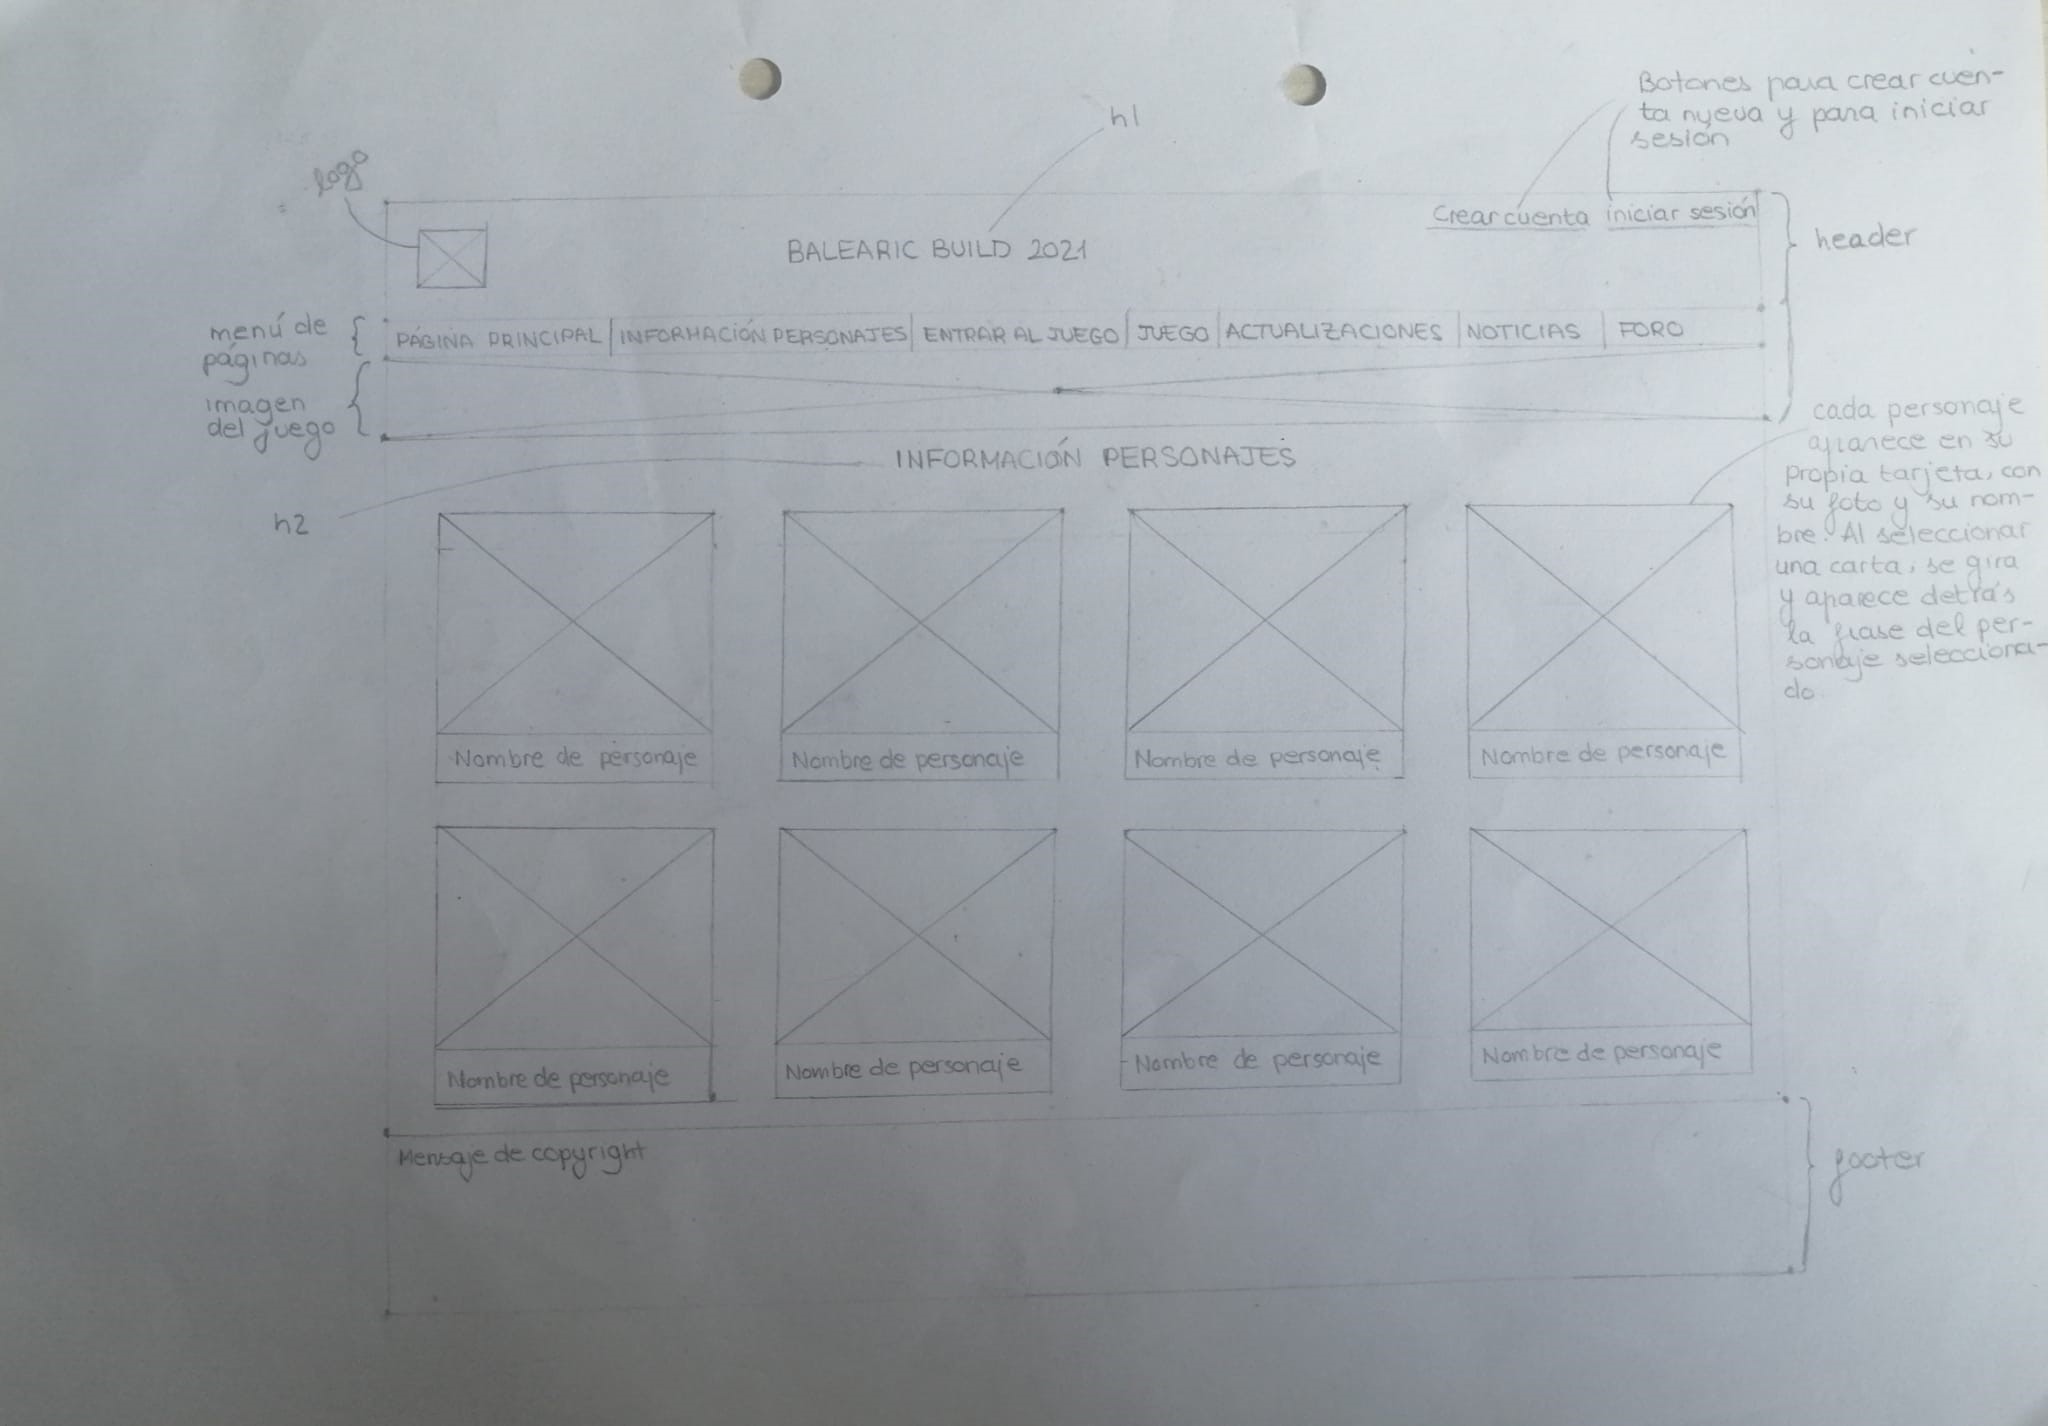 Botones para crear cuen-
ta nueva y para iniciar
sesión
h1
logo
Crear cuenta iniciar sesión
header
BALEARIC BUILD 2021
menú de
páginas
PÁGINA PRINCIPAL INFORMACIÓN PERSONAJES ENTRAR AL JUEGO JUEGO ACTUALIZACIONES NOTICIAS FORO
imagen
del juego
INFORMACIÓN PERSONAJES
h2
cada personaje
aparece en su
propia tarjeta, con
su foto y su nom-
bre. Al seleccionar
una carta, se gira
y aparece detrás
la frase del per-
sonaje selecciona-
do.
Nombre de personaje Nombre de personaje Nombre de personaje Nombre de personaje
Nombre de personaje Nombre de personaje Nombre de personaje Nombre de personaje
Mensaje de copyright
footer